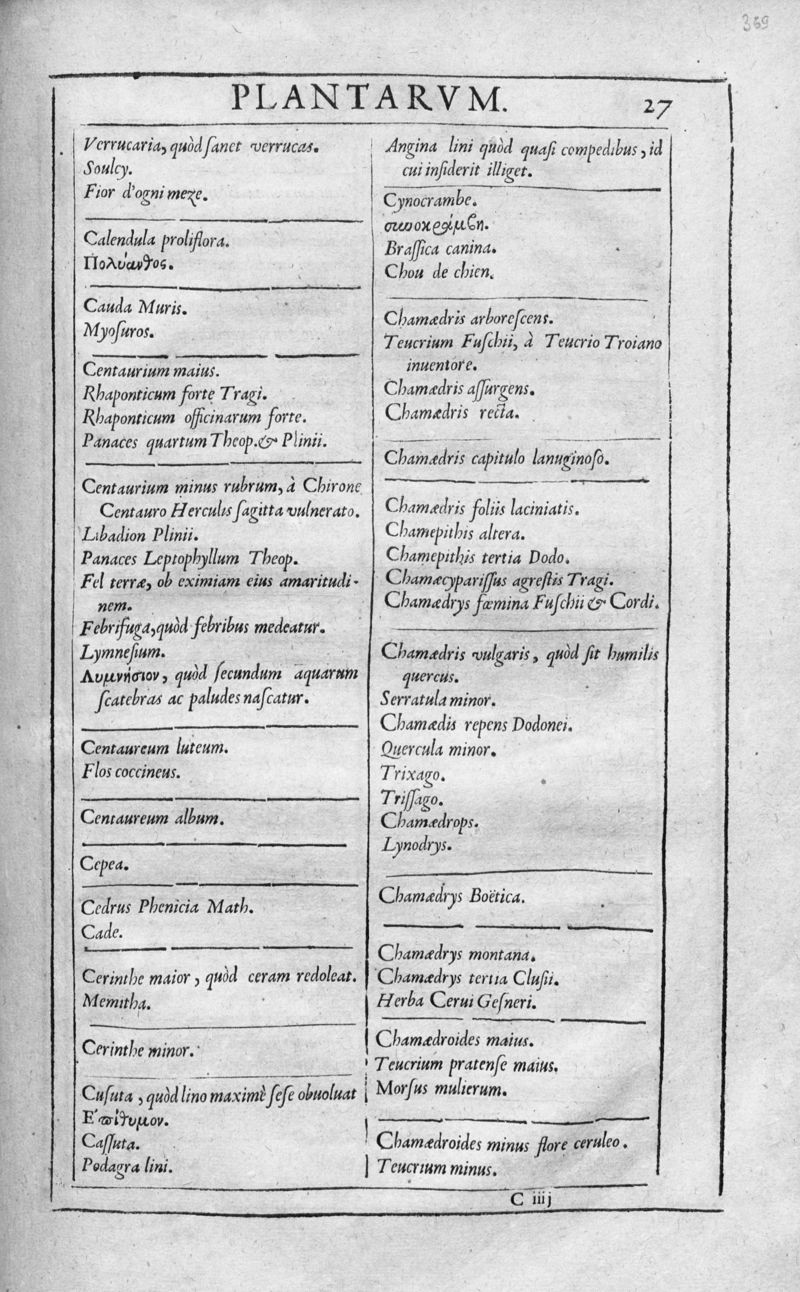 369
PLANTARVM.
27
Verrucaria, quòd sanet verrucas.
Soulcy.
Fior d'ogni meze.
Calendula proliflora.
Πολύανθος.
Cauda Muris.
Myosuros.
Centaurium maius.
Rhaponticum forte Tragi.
Rhaponticum officinarum forte.
Panaces quartum Theop. & Plinii.
Centaurium minus rubrum, à Chirone
Centauro Herculis sagitta vulnerato.
Libadion Plinii.
Panaces Leptophyllum Theop.
Fel terræ, ob eximiam eius amaritudi-
nem.
Febrifuga, quòd febribus medeatur.
Lymnesium.
Λυμνήσιον, quòd secundum aquarum
scatebras ac paludes nascatur.
Centaureum luteum.
Flos coccineus.
Centaureum album.
Cepea.
Cedrus Phenicia Math.
Cade.
Cerinthe maior, quòd ceram redoleat.
Memitha.
Cerinthe minor.
Cusuta, quòd lino maximè sese obuoluat
Ε᾿πίθυμον.
Cassuta.
Podagra lini.
Angina lini quòd quasi compedibus, id
cui insiderit illiget.
Cynocrambe.
συνοκράμβη.
Brassica canina.
Chou de chien.
Chamædris arborescens.
Teucrium Fuschii, à Teucrio Troiano
inuentore.
Chamædris assurgens.
Chamædris recta.
Chamædris capitulo lanuginoso.
Chamædris foliis laciniatis.
Chamepithis altera.
Chamepithis tertia Dodo.
Chamæcyparissus agrestis Tragi.
Chamædrys fœmina Fuschii & Cordi.
Chamædris vulgaris, quòd sit humilis
quercus.
Serratula minor.
Chamædis repens Dodonei.
Quercula minor.
Trixago.
Trissago.
Chamædrops.
Lynodrys.
Chamædrys Boëtica.
Chamædrys montana.
Chamædrys tertia Clusii.
Herba Cerui Gesneri.
Chamædroides maius.
Teucrium pratense maius.
Morsus mulierum.
Chamædroides minus flore ceruleo.
Teucrium minus.
C iiij